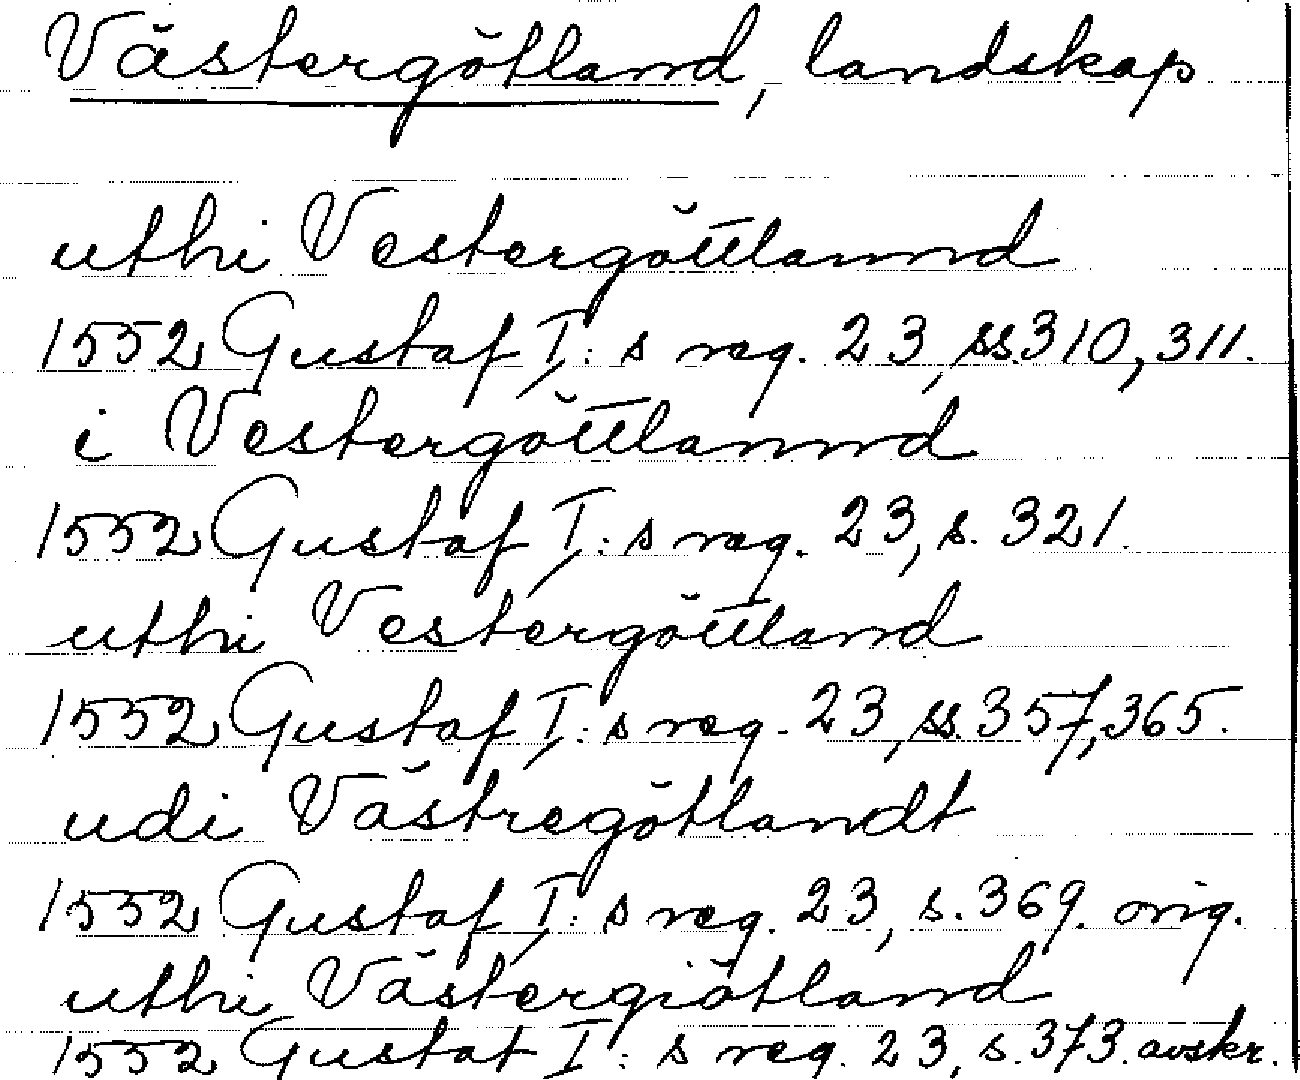 Västergötland, landskap
uthi Vestergöttlannd
1552 Gustaf I:s reg. 23, ss. 310, 311.
i Vestergöttlannd
1552 Gustaf I:s reg. 23, s. 321.
uthi Vestergöttland
1552 Gustaf I:s reg. 23, ss. 357, 365.
udi Västregötlandt
1552 Gustaf I:s reg. 23, s. 369. orig.
uthi Västergiötland
1552 Gustaf I:s reg. 23, s. 373. avskr.